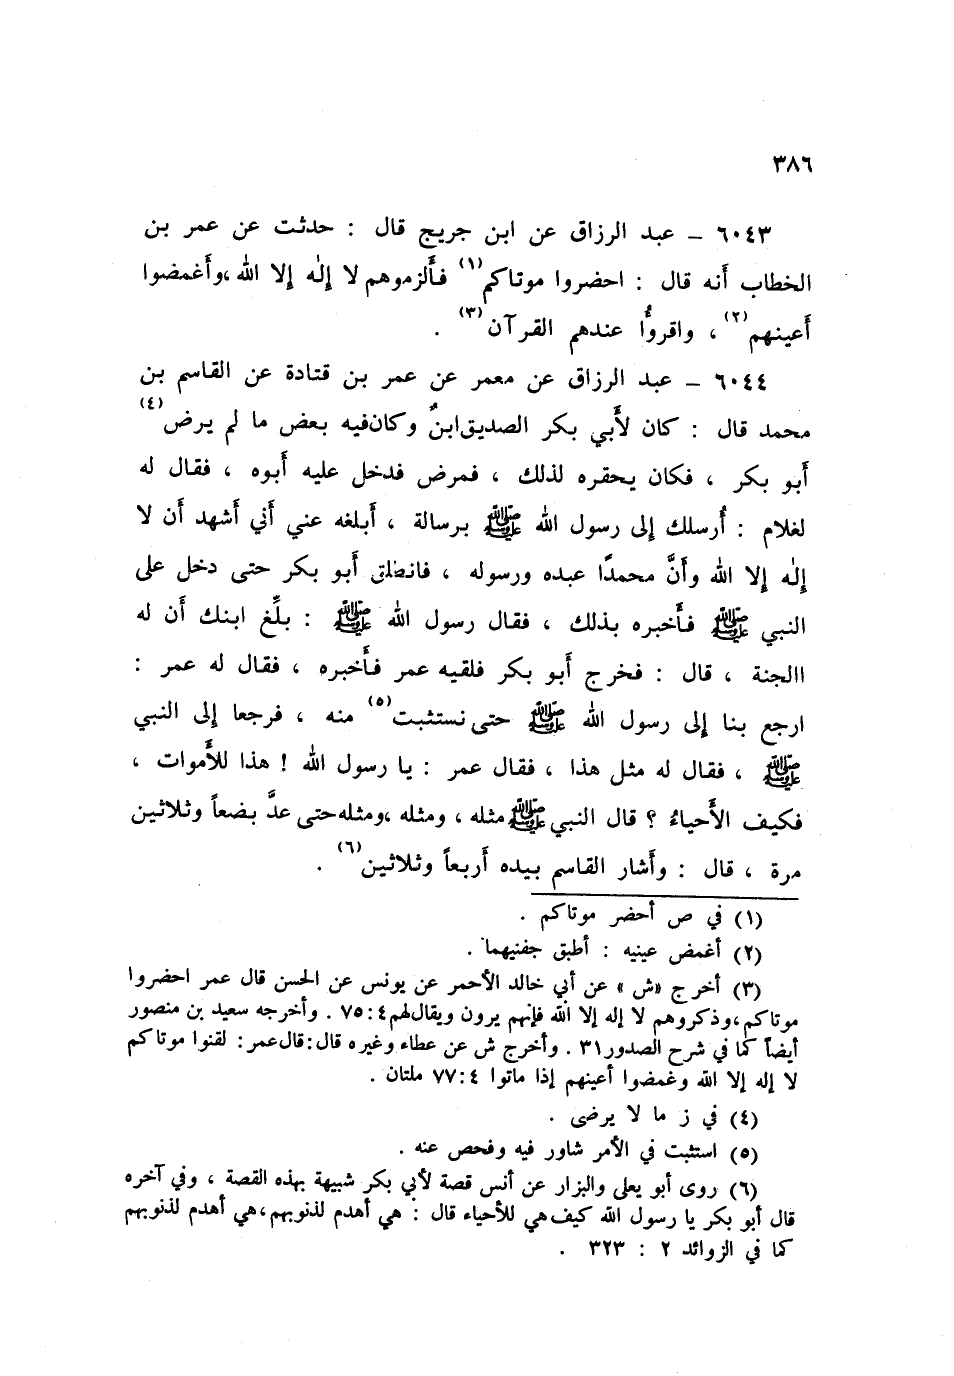 ٣٨٦
٦٠٤٣ – عبد الرزاق عن ابن جريج قال : حدثت عن عمر بن
الخطاب أنه قال : احضروا موتاكم(١) فأَلزموهم لا إلٰه إلا الله ،وأَغمضوا
أَعينهم(٢) ، واقروأُ عندهم القرآن(٣) .
٦٠٤٤ – عبد الرزاق عن معمر عن عمر بن قتادة عن القاسم بن
محمد قال : كان لأَبي بكر الصديق ابنٌ وكان فيه بعض ما لم يرض(٤)
أَبو بكر ، فكان يحقره لذلك ، فمرض فدخل عليه أَبوه ، فقال له
لغلام : أُرسلك إلى رسول الله ﷺ برسالة ، أَبلغه عني أَني أَشهد أَن لا
إلٰه إلا الله وأَنَّ محمدًا عبده ورسوله ، فانطلق أَبو بكر حتى دخل على
النبي ﷺ فأَخبره بذلك ، فقال رسول الله ﷺ : بلِّغ ابنك أَن له
االجنة ، قال : فخرج أَبو بكر فلقيه عمر فأَخبره ، فقال له عمر :
ارجع بنا إلى رسول الله ﷺ حتى نستثبت(٥) منه ، فرجعا إلى النبي
ﷺ ، فقال له مثل هذا ، فقال عمر : يا رسول الله ! هذا للأَموات ،
فكيف الأَحياءُ ؟ قال النبي ﷺ مثله ، ومثله ،ومثله حتى عدَّ بضعاً وثلاثين
مرة ، قال : وأَشار القاسم بيده أَربعاً وثلاثين(٦) .
(١) في ص أحضر موتاكم .
(٢) أغمض عينيه : أطبق جفنيهما .
(٣) أخرج «ش» عن أبي خالد الأحمر عن يونس عن الحسن قال عمر احضروا
موتاكم،وذكروهم لا إله إلا الله فإنهم يرون ويقال لهم ٤:٧٥ . وأخرجه سعيد بن منصور
أيضاً كما في شرح الصدور ٣١ . وأخرج ش عن عطاء وغيره قال:قال عمر: لقنوا موتاكم
لا إله إلا الله وغمضوا أعينهم إذا ماتوا ٤:٧٧ ملتان .
(٤) في ز ما لا يرضى .
(٥) استثبت في الأمر شاور فيه وفحص عنه .
(٦) روى أبو يعلى والبزار عن أنس قصة لأبي بكر شبيهة بهذه القصة ، وفي آخره
قال أبو بكر يا رسول الله كيف هي للأحياء قال : هي أهدم لذنوبهم،هي أهدم لذنوبهم
كما في الزوائد ٢ : ٣٢٣ .